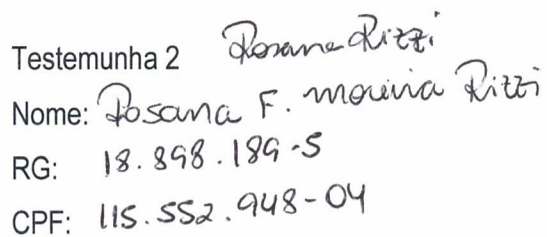 Testemunha 2 Rosana Rizzi
Nome: Rosana F. Moreira Rizzi
RG: 18.898.189-5
CPF: 115.552.948-04